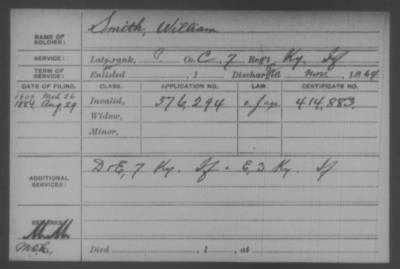 Smith, William
NAME OF SOLDIER:
SERVICE: Late rank, P Co. C, 7 Reg't Ky. If
TERM OF SERVICE: Enlisted , 1 Discharged Nov. , 1864
DATE OF FILING. CLASS. APPLICATION NO. LAW. CERTIFICATE NO.
1886 Aug 29 Invalid, 576,294 414,883
Widow,
Minor,
ADDITIONAL SERVICES: D & E, 7 Ky. If & E, 3 Ky. If
REMARKS:
Died , 1 , at